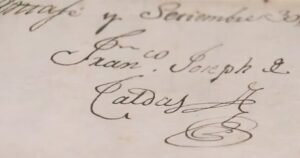 y Seriembre
Fran.co Joseph de
Caldas